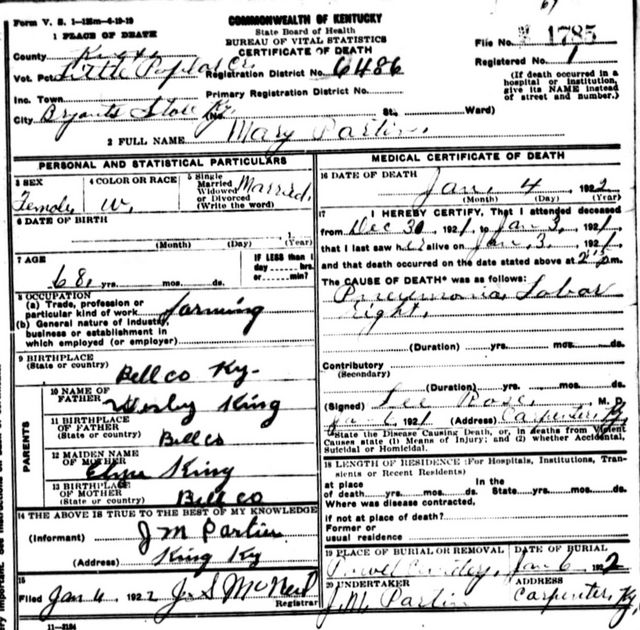 Form V. S. 1-125m-4-19-19
COMMONWEALTH OF KENTUCKY
State Board of Health
BUREAU OF VITAL STATISTICS
CERTIFICATE OF DEATH
1 PLACE OF DEATH
File No. 1785
County
Registered No. 1
Vot. Pct. Little Poplar Cr. Registration District No. 6486
(If death occurred in a hospital or institution, give its NAME instead of street and number.)
Inc. Town Primary Registration District No.
City Bryants Store Ky. St., Ward)
2 FULL NAME Mary Partin.
PERSONAL AND STATISTICAL PARTICULARS
3 SEX Female
4 COLOR OR RACE W.
5 Single Married Widowed or Divorced (Write the word) Married.
6 DATE OF BIRTH
(Month) (Day) (Year)
7 AGE
68. yrs. mos. ds.
IF LESS than 1 day hrs. or min.?
8 OCCUPATION
(a) Trade, profession or particular kind of work farming
(b) General nature of Industry, business or establishment in which employed (or employer)
9 BIRTHPLACE
(State or country) Bell co Ky-
PARENTS
10 NAME OF FATHER King
11 BIRTHPLACE OF FATHER (State or country) Bell co
12 MAIDEN NAME OF MOTHER King
13 BIRTHPLACE OF MOTHER (State or country) Bell co
14 THE ABOVE IS TRUE TO THE BEST OF MY KNOWLEDGE
(Informant) J M Partin
(Address) King Ky
15
Filed Jan 4, 1922 J. S. McNeil
Registrar
11-3184
MEDICAL CERTIFICATE OF DEATH
16 DATE OF DEATH
Jan. 4 1922
(Month) (Day) (Year)
17 I HEREBY CERTIFY, That I attended deceased
from Dec 30 1921, to Jan 3, 1921,
that I last saw her alive on Jan, 3, 1921
and that death occurred on the date stated above at 2 pm.
The CAUSE OF DEATH* was as follows:
Pneumonia, Lobar
right.
(Duration) yrs. mos. ds.
Contributory
(Secondary)
(Duration) yrs. mos. ds.
(Signed) Lee Rose, M. D.
6 1921 (Address) Carpenter, Ky
*State the Disease Causing Death, or, in deaths from Violent Causes state (1) Means of Injury; and (2) whether Accidental, Suicidal or Homicidal.
18 LENGTH OF RESIDENCE (For Hospitals, Institutions, Transients or Recent Residents)
at place of death yrs. mos. ds. In the State yrs. mos. ds.
Where was disease contracted,
if not at place of death?
Former or
usual residence
19 PLACE OF BURIAL OR REMOVAL DATE OF BURIAL
Jan 6 1922
20 UNDERTAKER ADDRESS
J. M. Partin Carpenter, Ky.